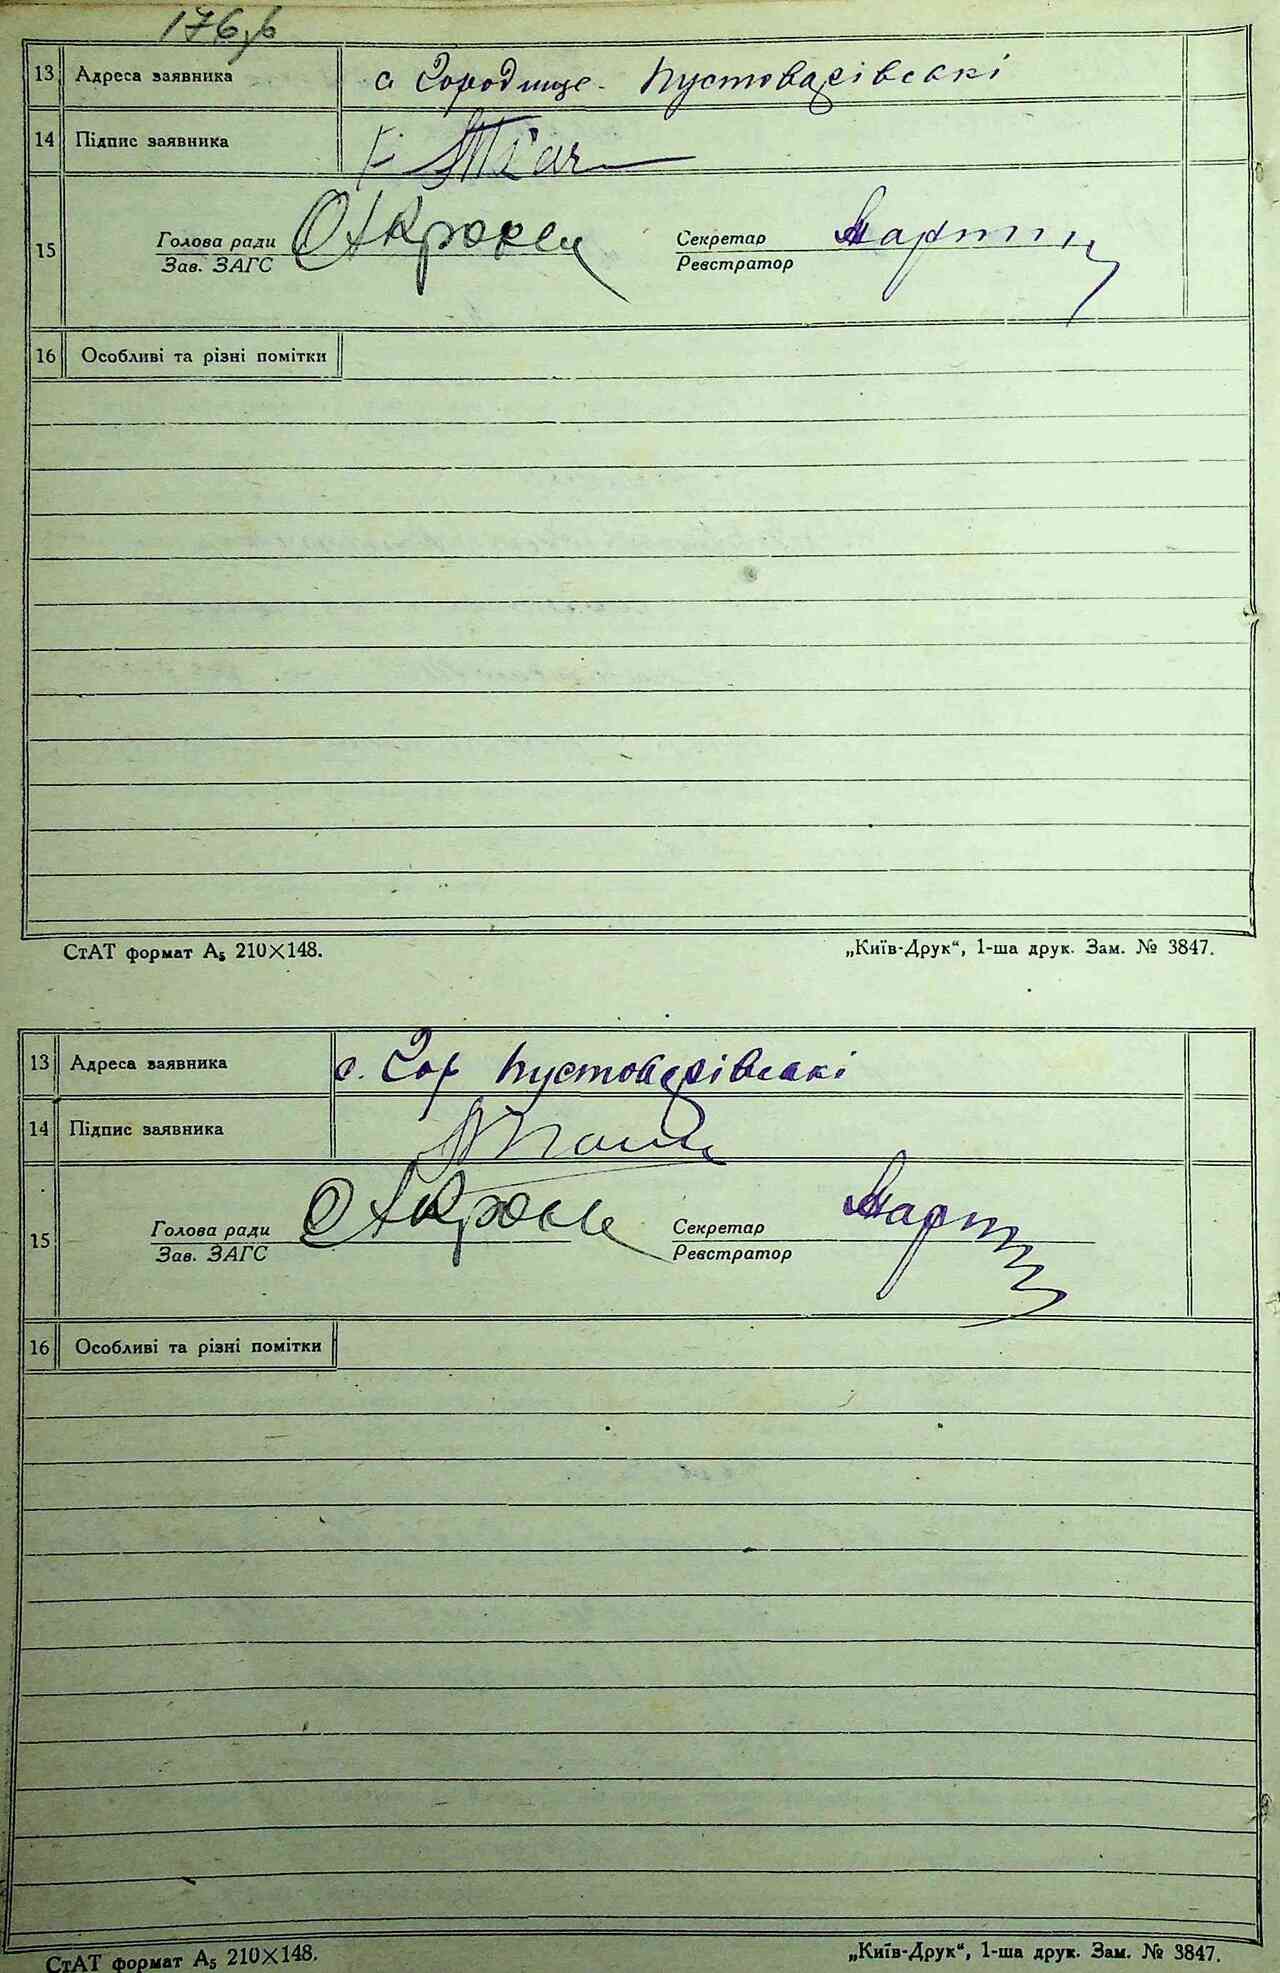 13 Адреса заявника с Городище-Пустоварівські
14 Підпис заявника
15 Голова ради Секретар
Зав. ЗАГС Реєстратор
16 Особливі та різні помітки
СтАТ формат А₅ 210×148. „Київ-Друк“, 1-ша друк. Зам. № 3847.
13 Адреса заявника с. Гор Пустоварівські
14 Підпис заявника
15 Голова ради Секретар
Зав. ЗАГС Реєстратор
16 Особливі та різні помітки
СтАТ формат А₅ 210×148. „Київ-Друк“, 1-ша друк. Зам. № 3847.